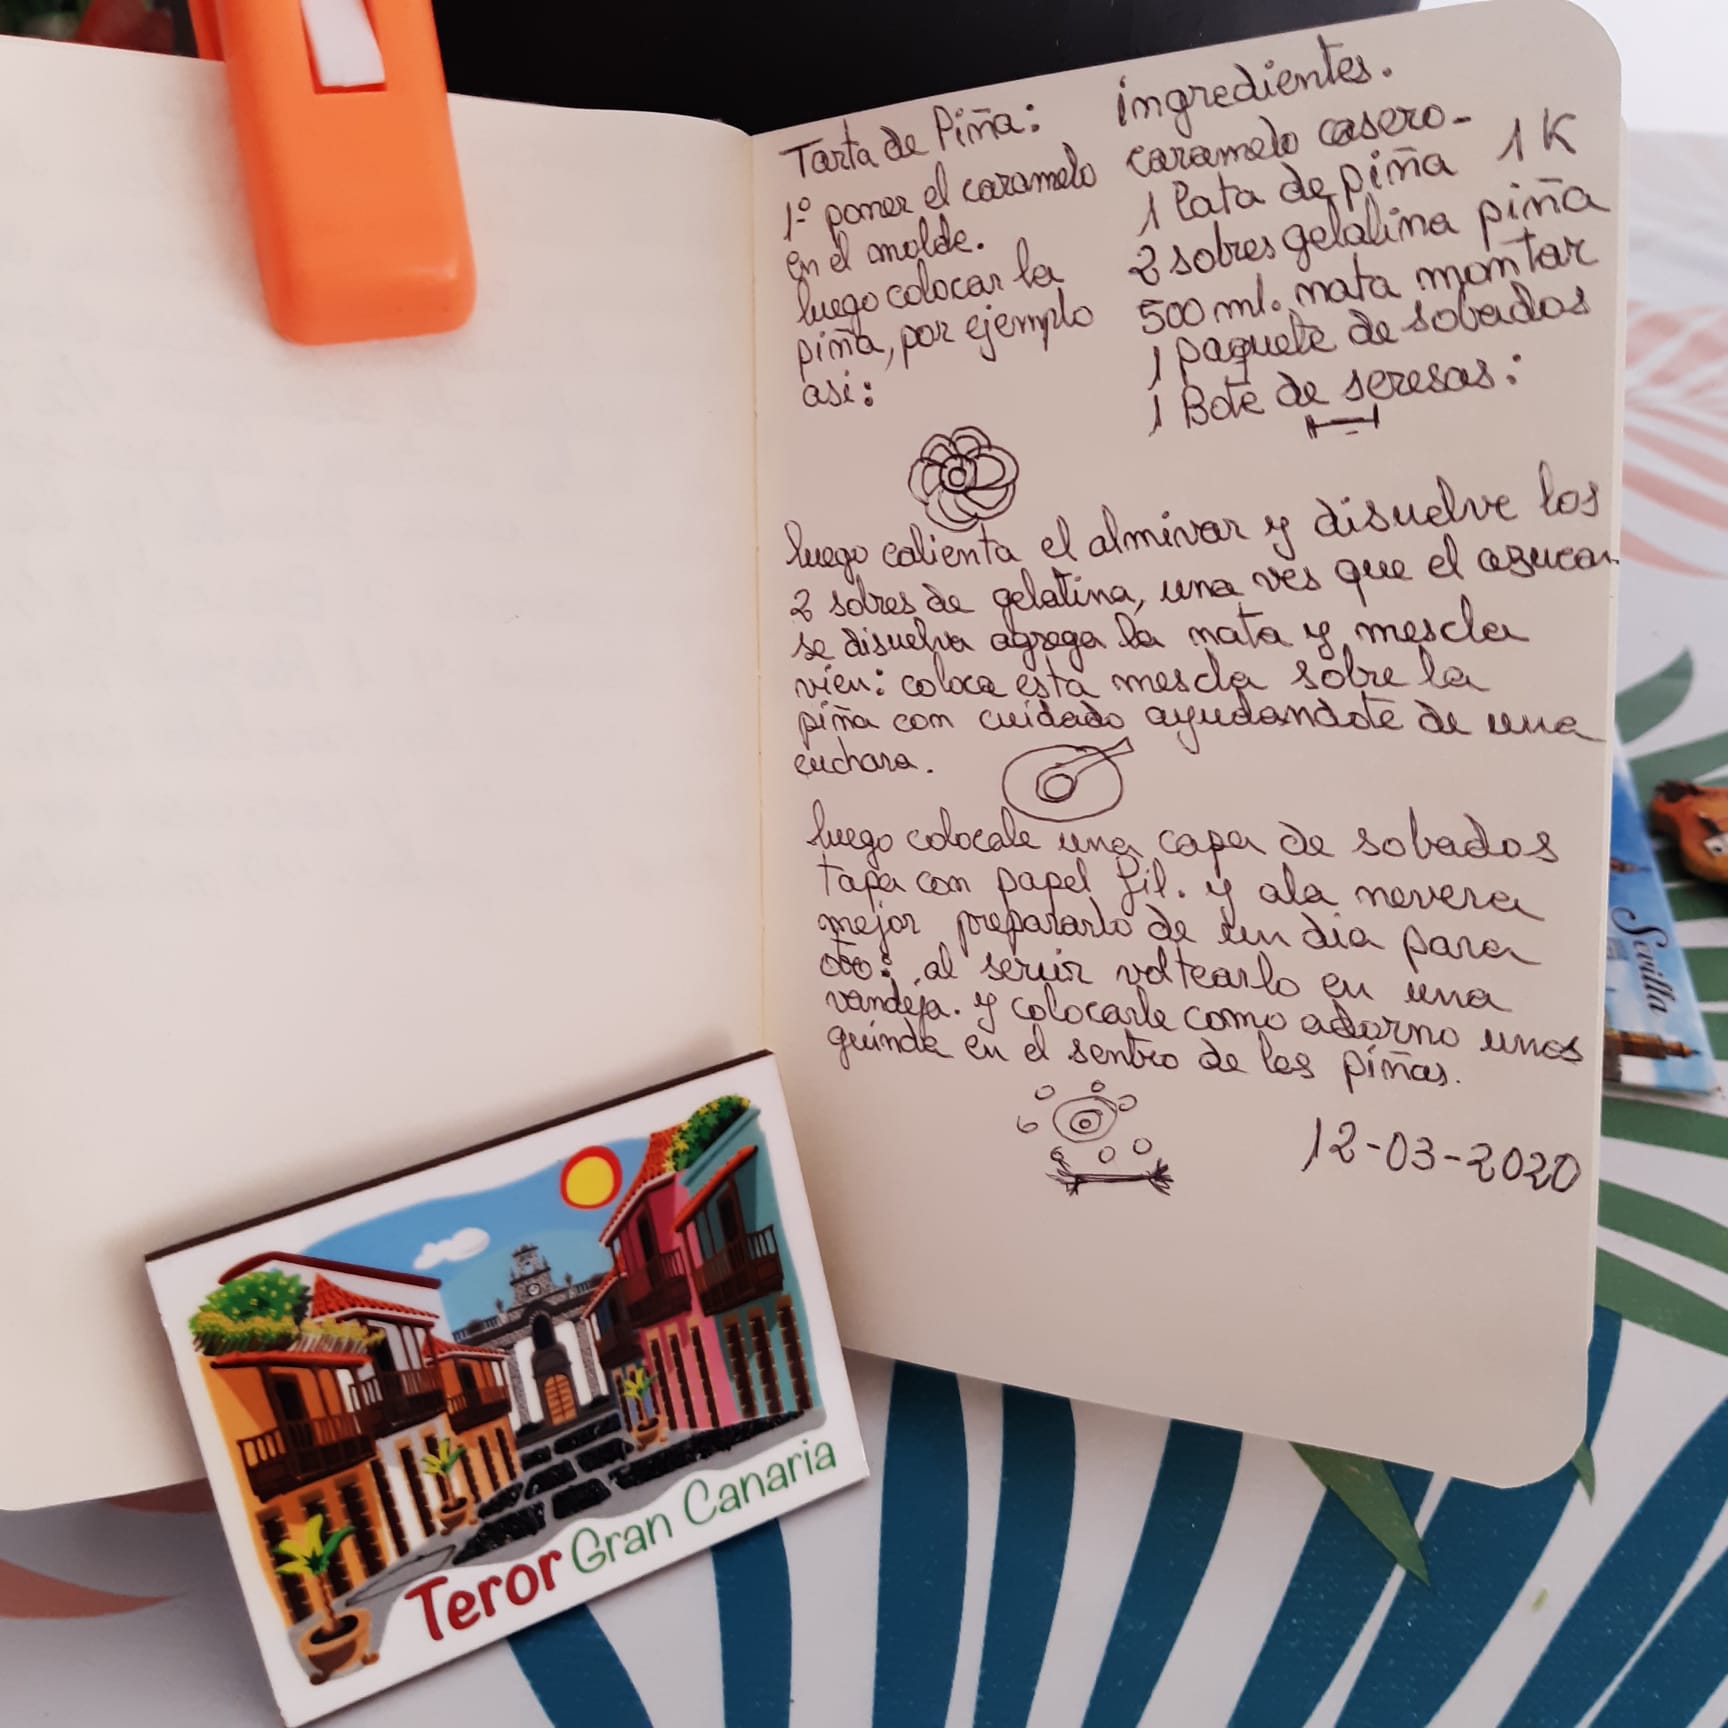 Tarta de Piña:
1º poner el caramelo
en el molde.
luego colocar la
piña, por ejemplo
asi:
ingredientes.
caramelo casero-
1 lata de piña 1K
2 sobres gelatina piña
500 ml. nata montar
1 paquete de sobados
1 Bote de seresas:
luego calienta el almivar y disuelve los
2 sobres de gelatina, una ves que el asucar
se disuelva agrega la nata y mescla
vien: coloca esta mescla sobre la
piña con cuidado ayudandote de una
cuchara.
luego colocale una capa de sobados
tapa con papel fil. y ala nevera
mejor prepararlo de un dia para
otro: al servir voltearlo en una
vandeja. y colocarle como adorno unas
guinda en el sentro de las piñas.
12-03-2020
Teror Gran Canaria
Sevilla